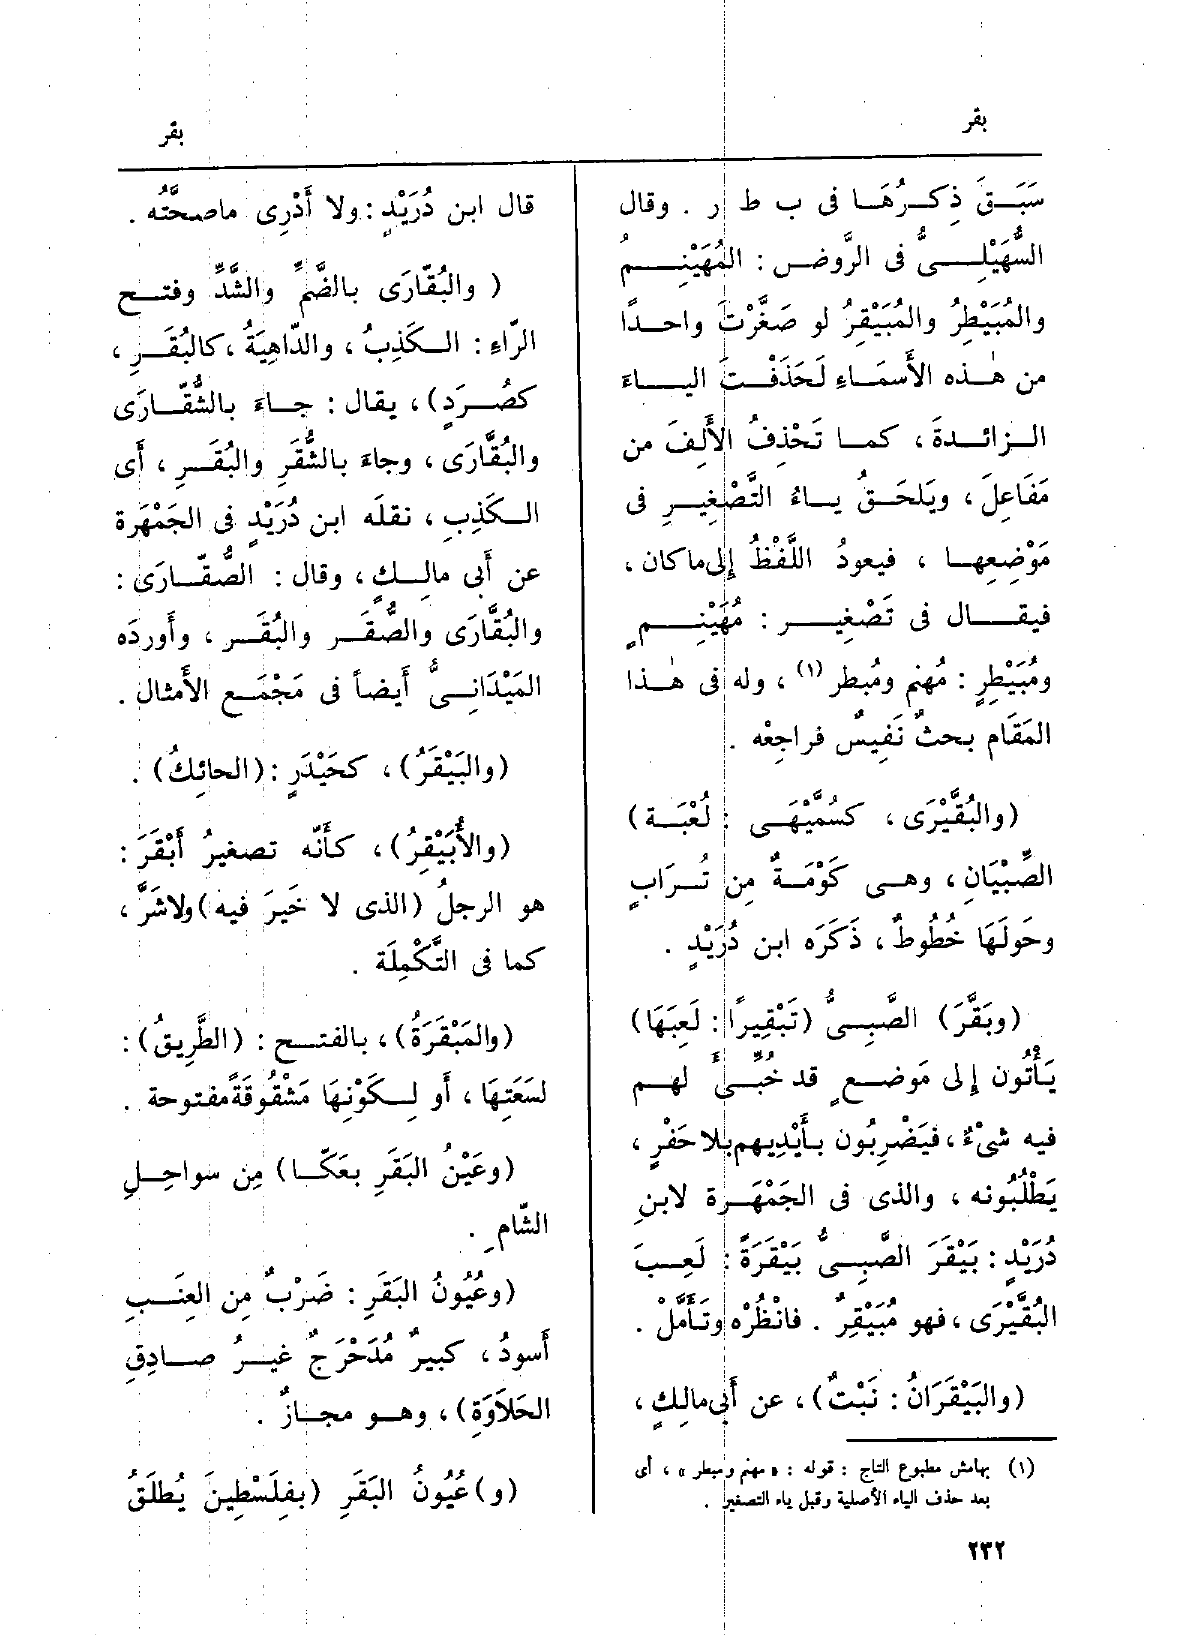 بقر
بقر
سَبَقَ ذِكرُهَا فى ب ط ر . وقال
السُّهَيْلِىُّ فى الرَّوض : المُهَيْنِمُ
والمُبَيْطِرُ والمُبَيْقِرُ لو صَغَّرْتَ واحدًا
من هٰذه الأَسماءِ لَحَذَفْتَ الياءَ
الزائدةَ ، كما تَحْذِفُ الأَلِفَ من
مَفَاعِلَ ، ويَلحَقُ ياءُ التَّصْغِيرِ فى
مَوْضِعِها ، فيعودُ اللَّفْظُ إِلى ما كان ،
فيقال فى تَصْغِير : مُهَيْنِمٍ
ومُبَيْطِرٍ : مُهنم ومُبطر (١) ، وله فى هٰذا
المَقَام بحثٌ نَفِيسٌ فراجِعْه .
(والبُقَّيْرَى ، كسُمَّيْهَى : لُعْبَة)
الصِّبْيَانِ ، وهى كَوْمَةٌ مِن تُرَابٍ
وحَولَهَا خُطُوطٌ ، ذَكَرَه ابن دُرَيْدٍ .
(وبَقَّرَ) الصَّبِىُّ (تَبْقِيرًا : لَعِبَهَا)
يَأْتُون إِلى مَوضعٍ قد خُبِّىءَ لهم
فيه شىْءٌ ، فيَضْرِبُون بأَيْدِيهم بلا حَفْرٍ ،
يَطْلُبُونه ، والذى فى الجَمْهَرة لابنِ
دُرَيْدٍ : بَيْقَرَ الصَّبِىُّ بَيْقَرَةً : لَعِبَ
البُقَّيْرَى ، فهو مُبَيْقِرٌ . فانْظُرْه وتَأَمَّلْ .
(والبَيْقَرَانُ : نَبْتٌ) ، عن أَبى مالِكٍ ،
(١) بهامش مطبوع التاج : قوله : « مهنم ومبطر » ، أى
بعد حذف الياء الأصلية وقبل ياء التصغير .
٢٣٢
قال ابن دُرَيْدٍ : ولا أَدْرِى ما صحَّتُه .
( والبُقّارَى بالضَّمِّ والشَّدِّ وفتح
الرّاءِ : الكَذِبُ ، والدّاهِيَةُ ، كالبُقَرِ ،
كصُرَدٍ) ، يقال : جاءَ بالشُّقّارَى
والبُقَّارَى ، وجاءَ بالشُّقَرِ والبُقَرِ ، أَى
الكَذِبِ ، نقلَه ابن دُرَيْدٍ فى الجَمْهَرة
عن أَبى مالِكٍ ، وقال : الصُّقّارَى :
والبُقَّارَى والصُّقَر والبُقَر ، وأَوردَه
المَيْدَانِىُّ أَيضاً فى مَجْمَع الأَمثال .
(والبَيْقَرُ) ، كحَيْدَرٍ : (الحائِكُ) .
(والأُبَيْقِرُ) ، كأَنّه تصغيرُ أَبْقَرَ :
هو الرجلُ (الذى لا خَيرَ فيه) ولا شَرَّ ،
كما فى التَّكْمِلَة .
(والمَبْقَرَةُ) ، بالفتح : (الطَّرِيقُ) :
لسَعَتِهَا ، أَو لِكَوْنِهَا مَشْقُوقَةً مفتوحة .
(وعَيْنُ البَقَرِ بعَكّا) مِن سواحِلِ
الشّامِ .
(وعُيُونُ البَقَرِ : ضَرْبٌ مِن العِنَبِ
أَسودُ ، كبيرٌ مُدَحْرَجٌ غيرُ صادِقِ
الحَلاَوَةِ) ، وهو مجازٌ .
(و) عُيُونُ البَقَرِ (بفِلَسْطِينَ يُطلَقُ